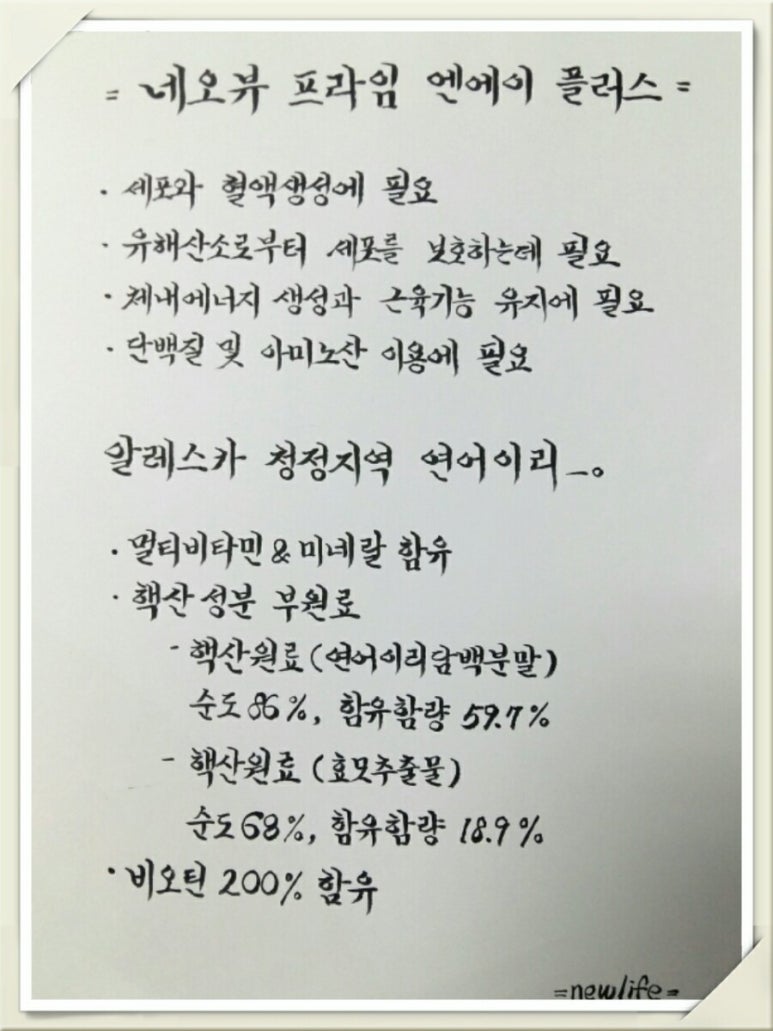 = 네오뷰 프라임 엔에이 플러스 =
· 세포와 혈액생성에 필요
· 유해산소로부터 세포를 보호하는데 필요
· 체내에너지 생성과 근육기능 유지에 필요
· 단백질 및 아미노산 이용에 필요
알레스카 청정지역 연어이리_。
· 멀티비타민 & 미네랄 함유
· 핵산성분 부원료
- 핵산원료 (연어이리담백분말)
순도 86%, 함유함량 59.7%
- 핵산원료 (효모추출물)
순도 68%, 함유함량 18.9%
· 비오틴 200% 함유
=newlife=